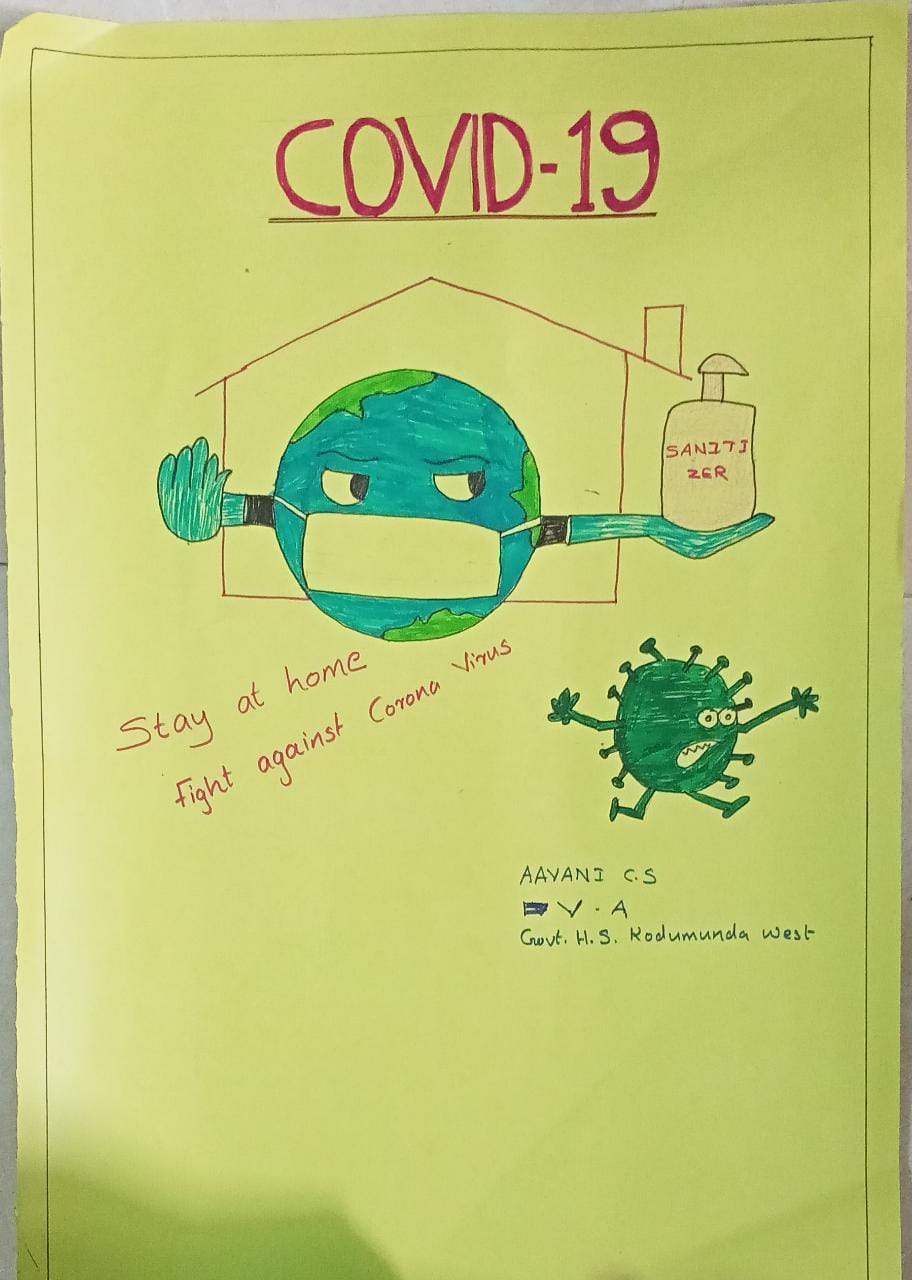 COVID-19
SANITI
ZER
Stay at home
Fight against Corona Virus
AAVANI C.S
V-A
Govt. H.S. Kodumunda West